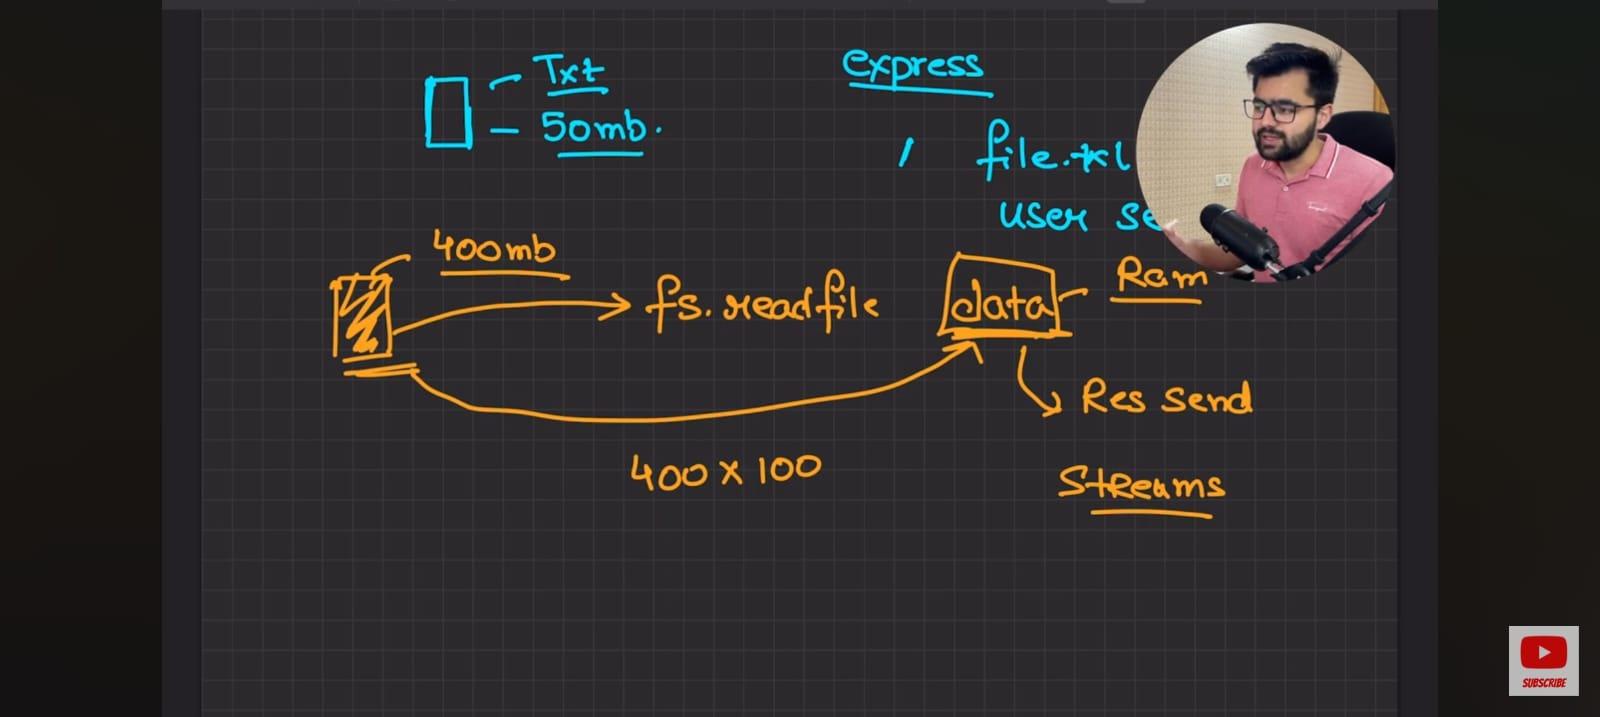 Txt
50mb.
express
/ file.txt
user se
400mb
fs.readfile
data
Ram
Res send
400 x 100
Streams
SUBSCRIBE